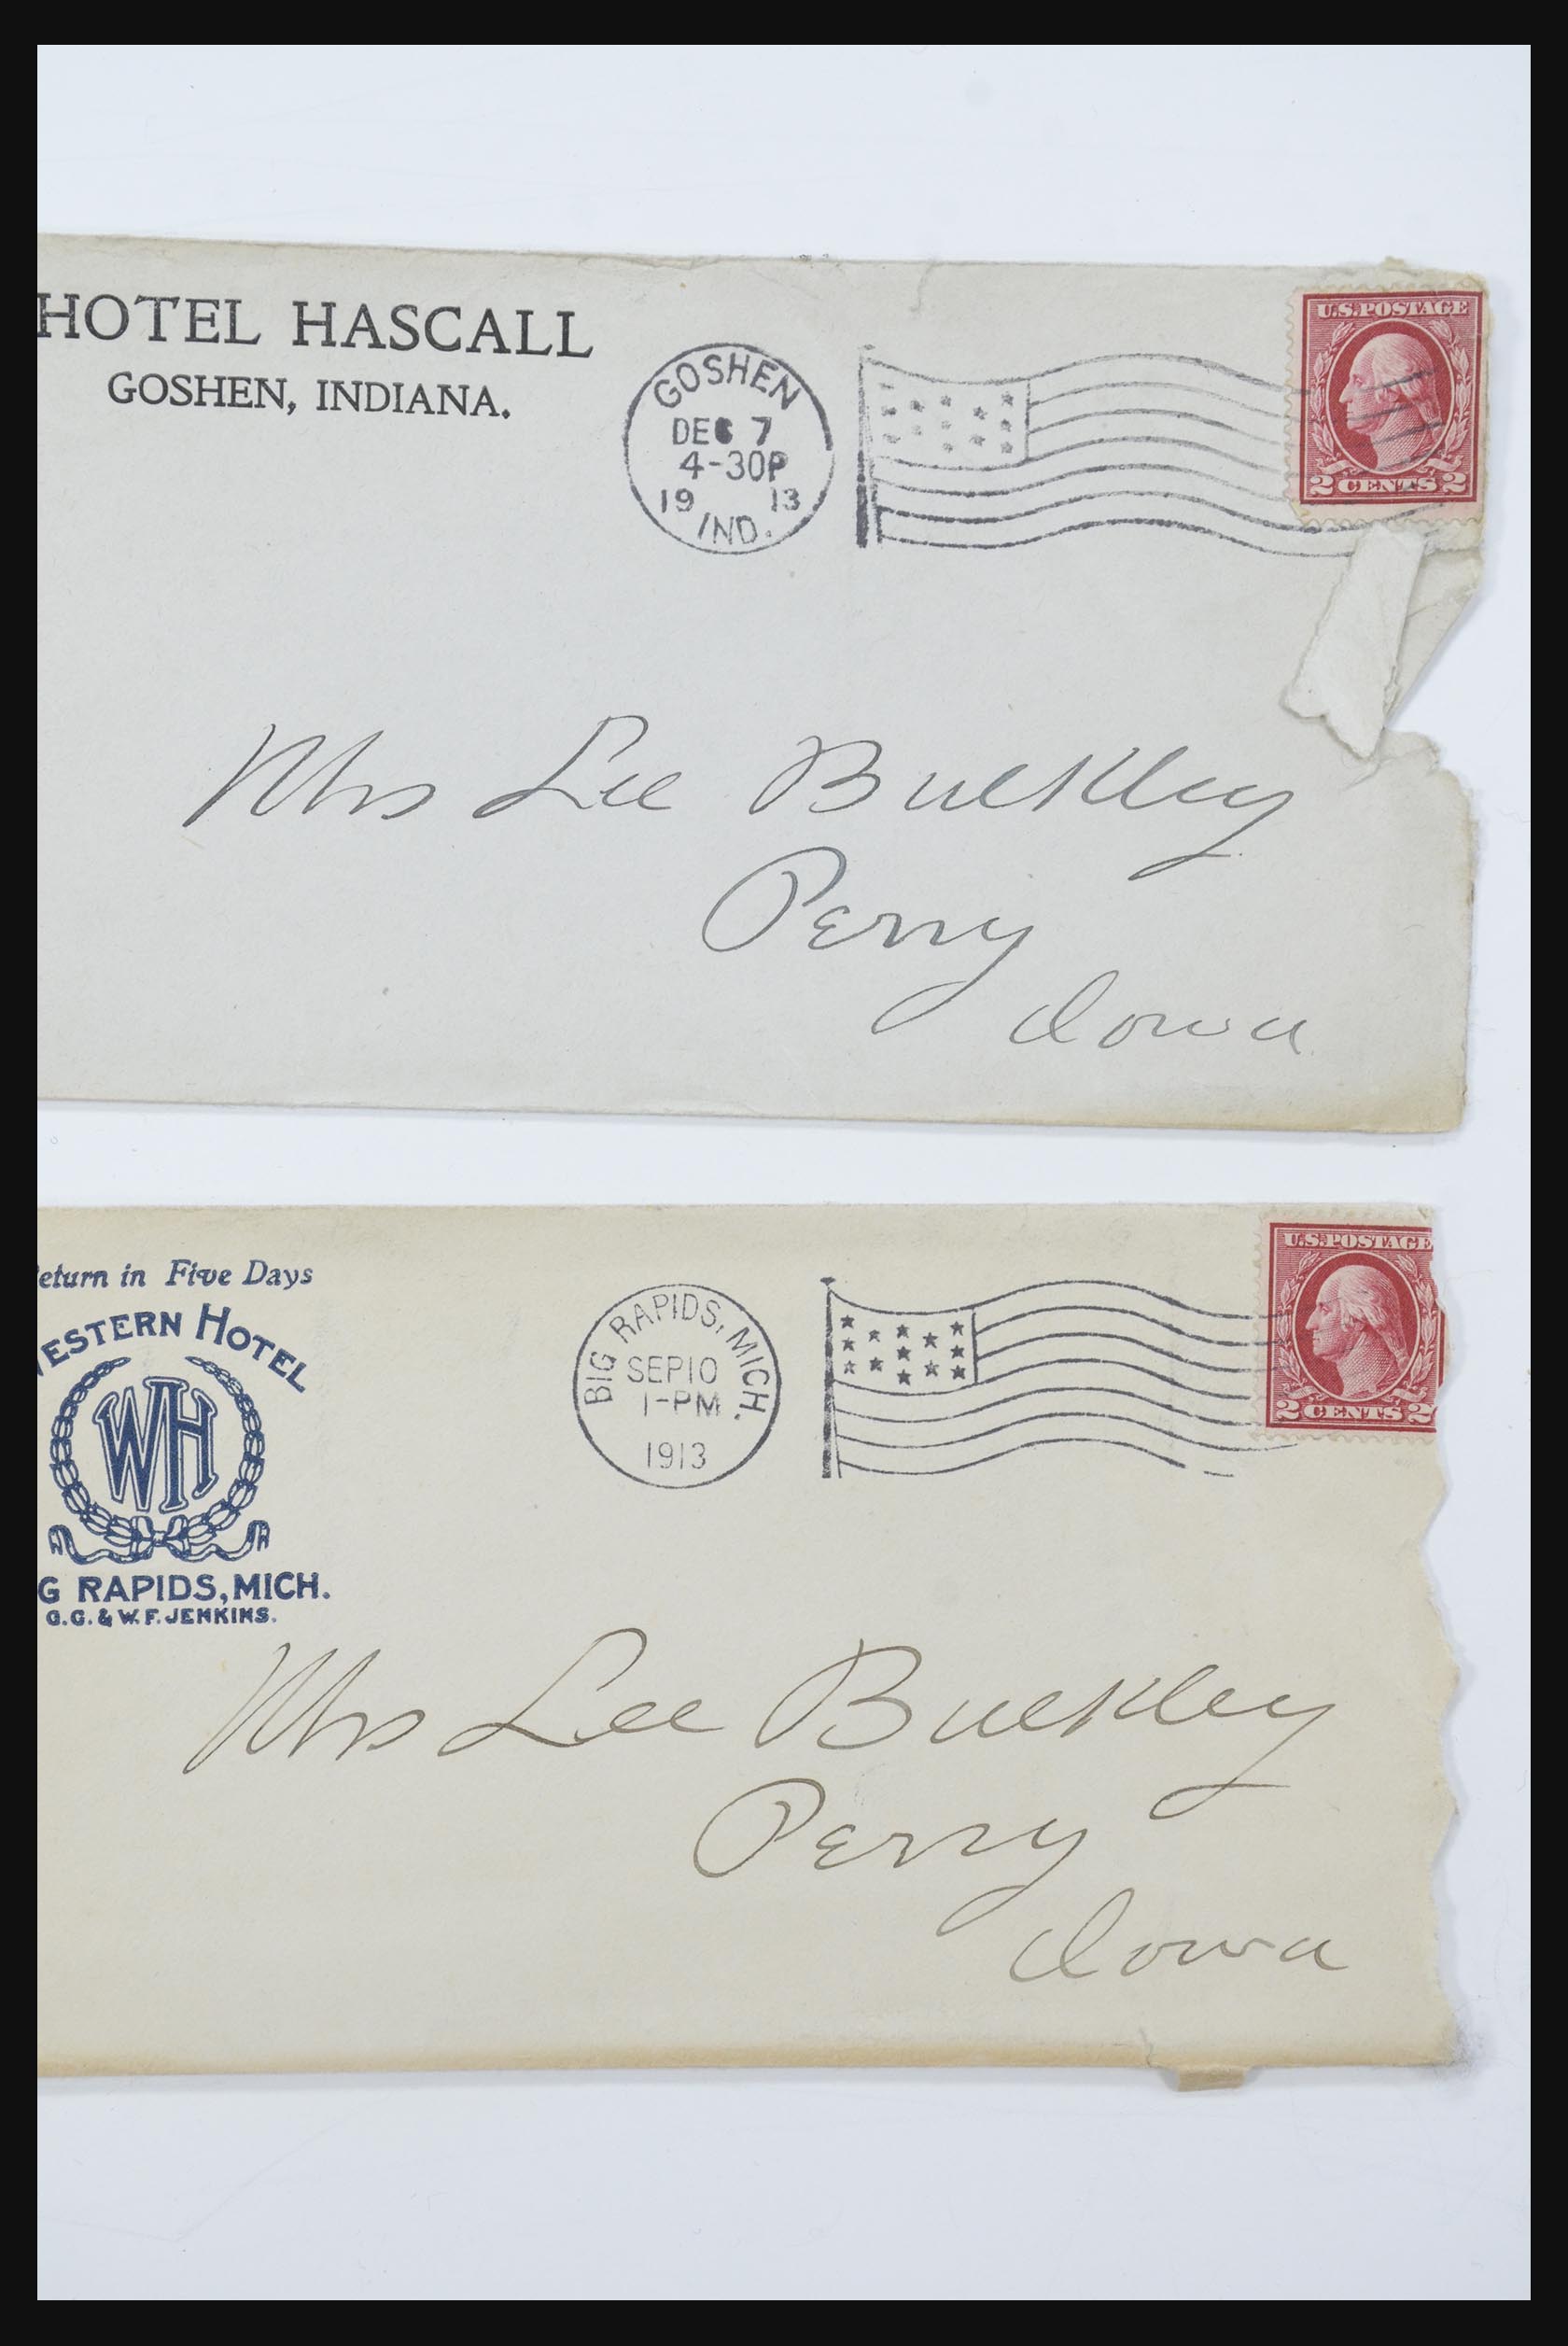 HOTEL HASCALL
GOSHEN, INDIANA.
GOSHEN
DEC 7
4-30P
19 13
IND.
U.S. POSTAGE
2 CENTS 2
Mrs Lee Buckley
Perry
Iowa
eturn in Five Days
ESTERN HOTEL
WH
G RAPIDS, MICH.
G.G. & W.F. JENKINS.
BIG RAPIDS, MICH.
SEP 10
1-PM
1913
U.S. POSTAGE
2 CENTS 2
Mrs Lee Buckley
Perry
Iowa